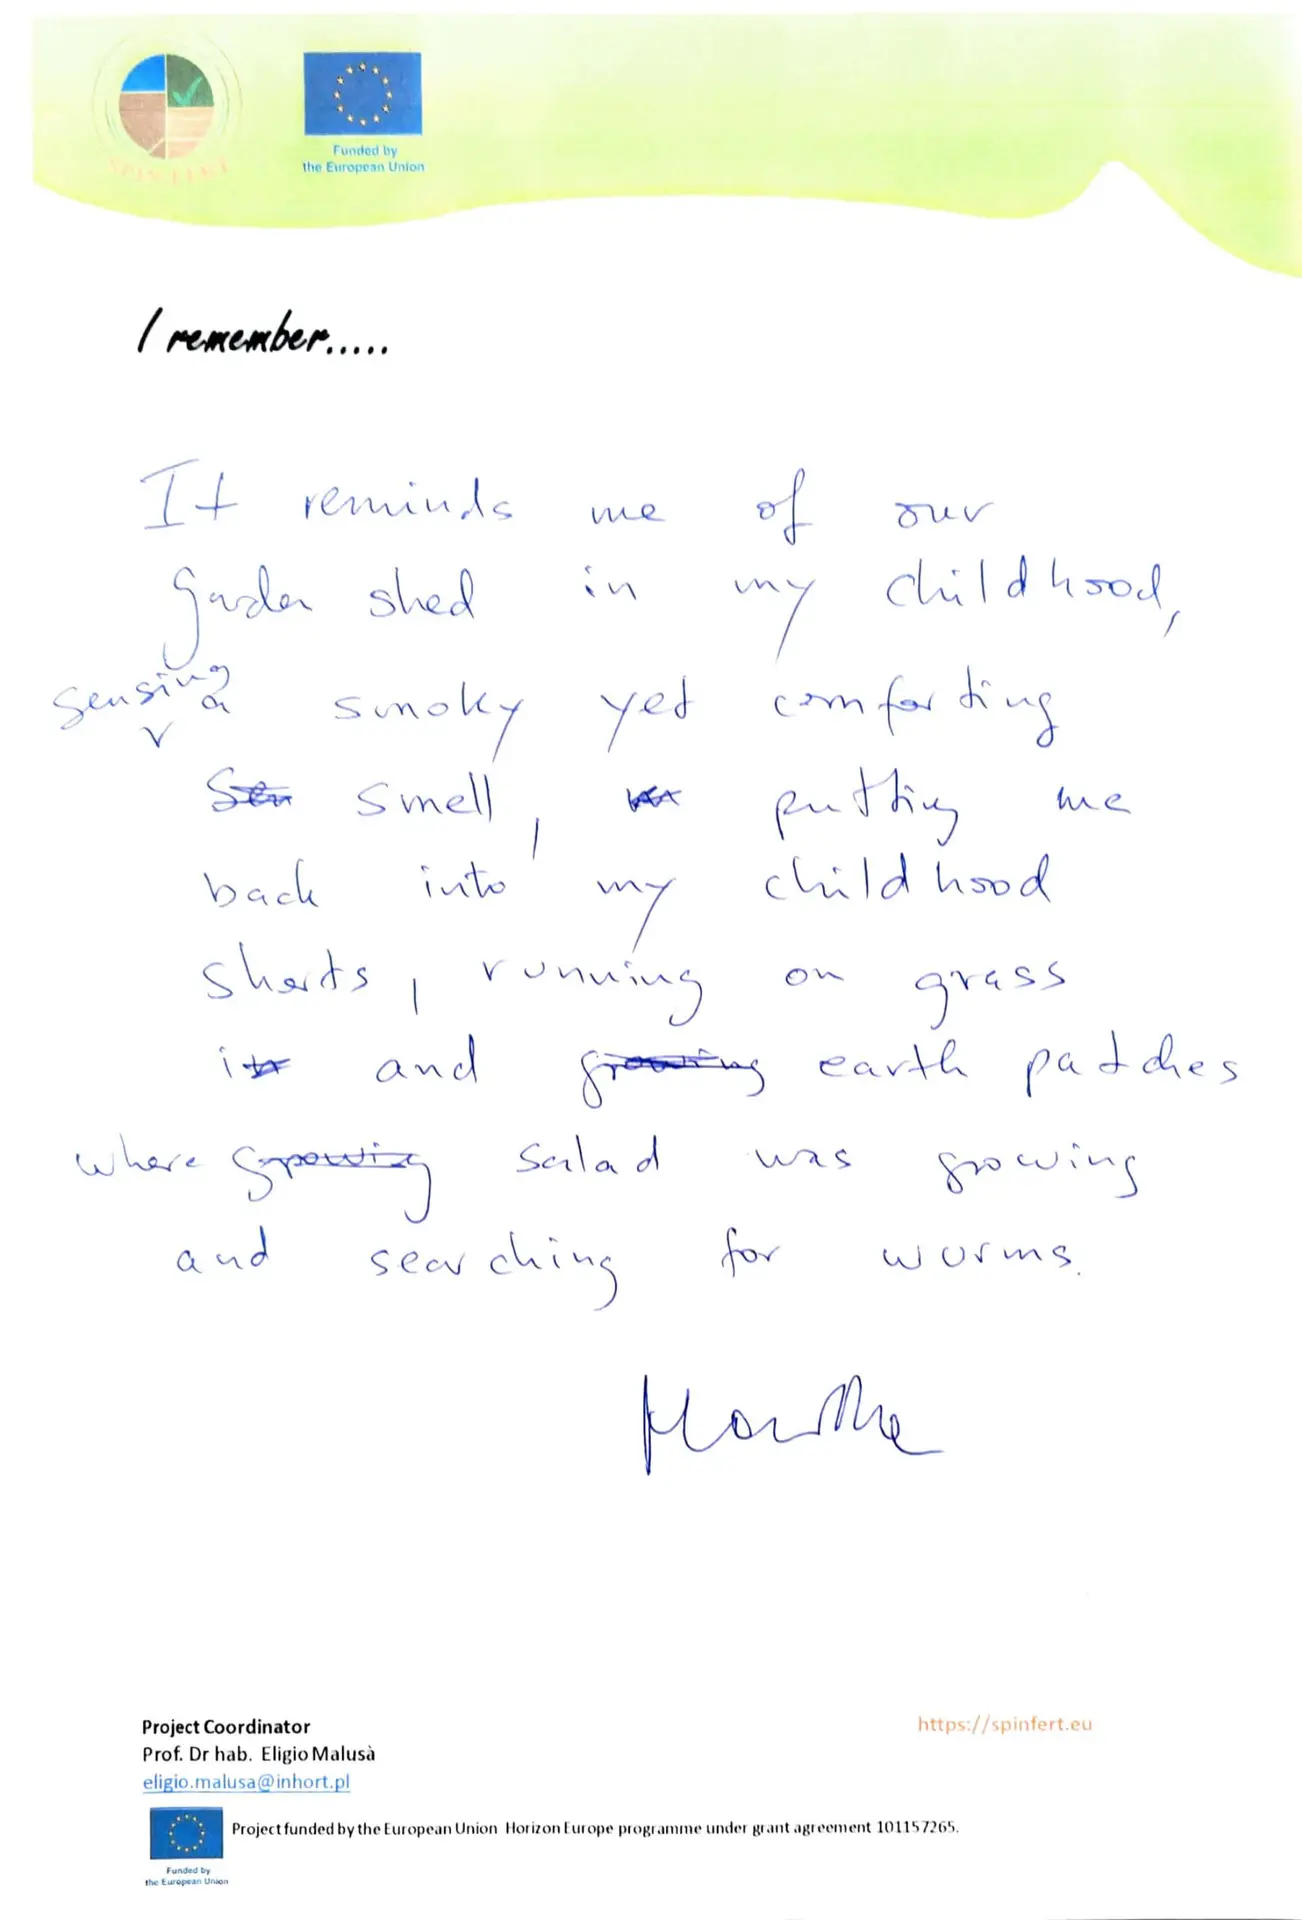 SPINFERT
Funded by
the European Union
I remember.....
It reminds me of our
garden shed in my childhood,
sensing a smoky yet comforting
smell, putting me
back into my childhood
shorts, running on grass
and earth patches
where salad was growing
and searching for worms.
Project Coordinator
Prof. Dr hab. Eligio Malusà
eligio.malusa@inhort.pl
https://spinfert.eu
Project funded by the European Union Horizon Europe programme under grant agreement 101157265.
Funded by
the European Union